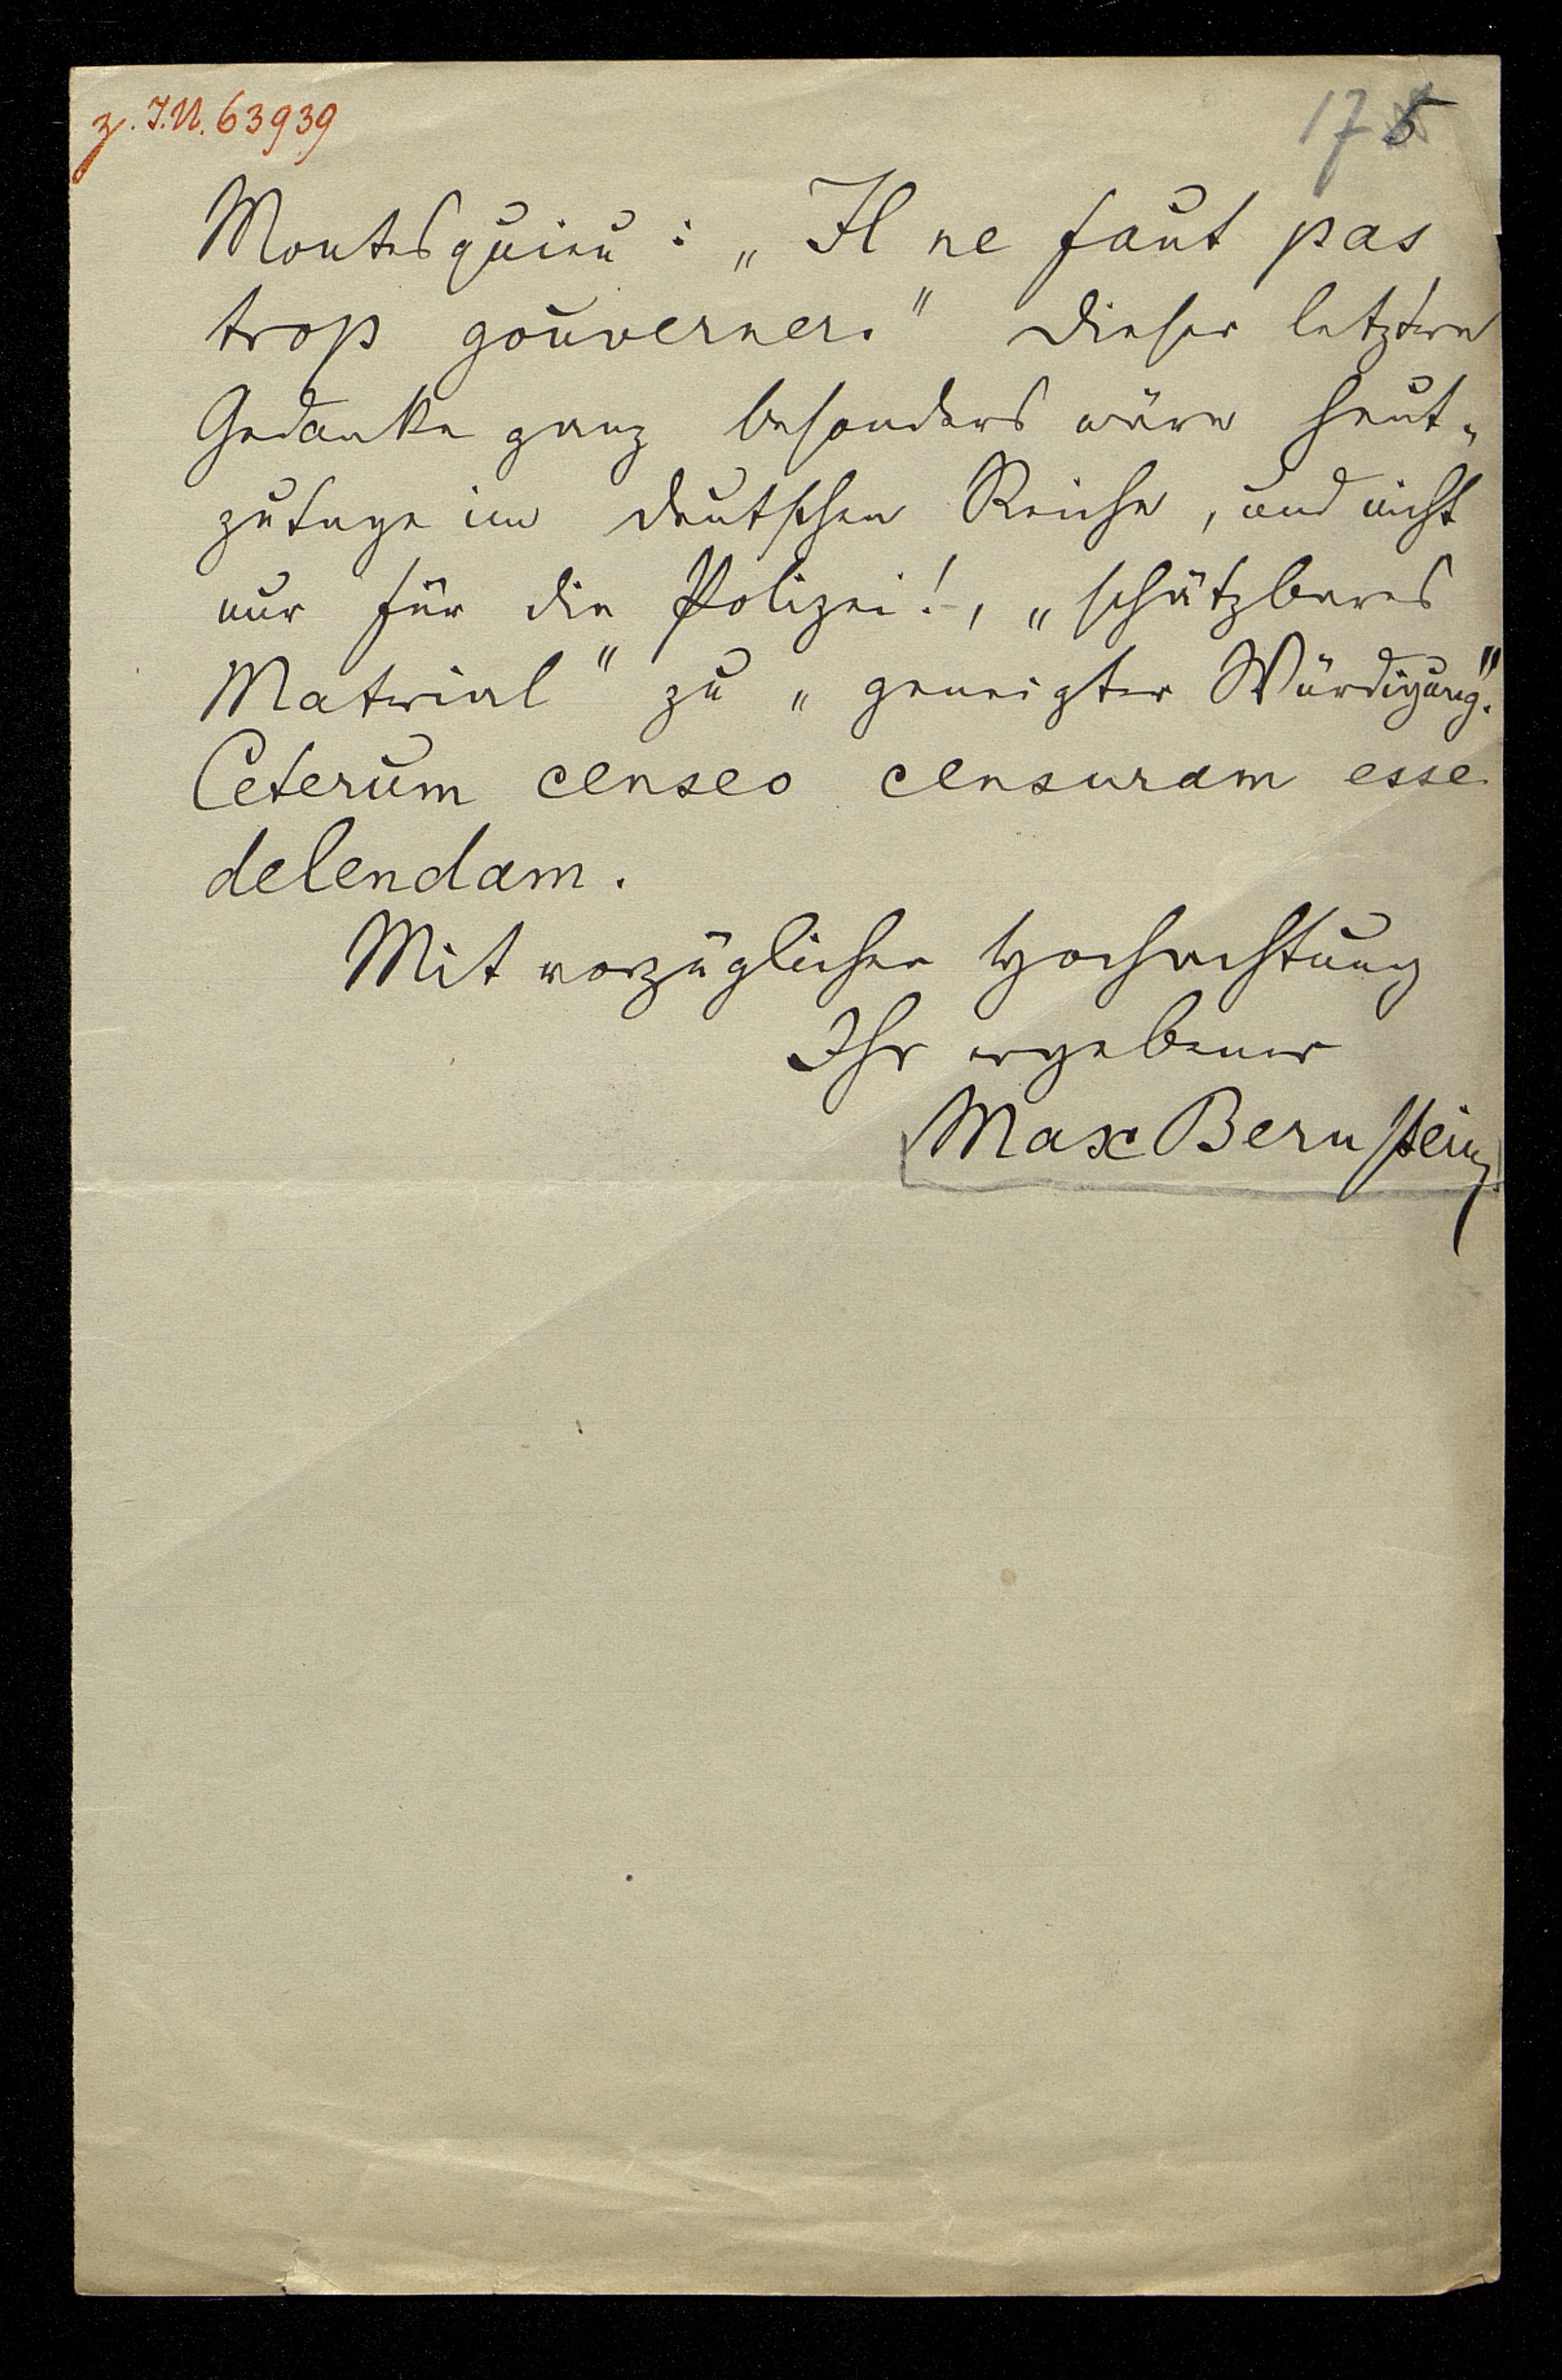 z. I.N. 63939
175
Montesquieu: „Il ne faut pas
trop gouverner." Dieser letztere
Gedanke ganz besonders wäre heut-
zutage im deutschen Reiche, und nicht
nur für die Polizei!, „schätzbares
Material" zu „geneigter Würdigung".
Ceterum censeo censuram esse
delendam.
Mit vorzüglicher Hochachtung
Ihr ergebener
Max Bernstein